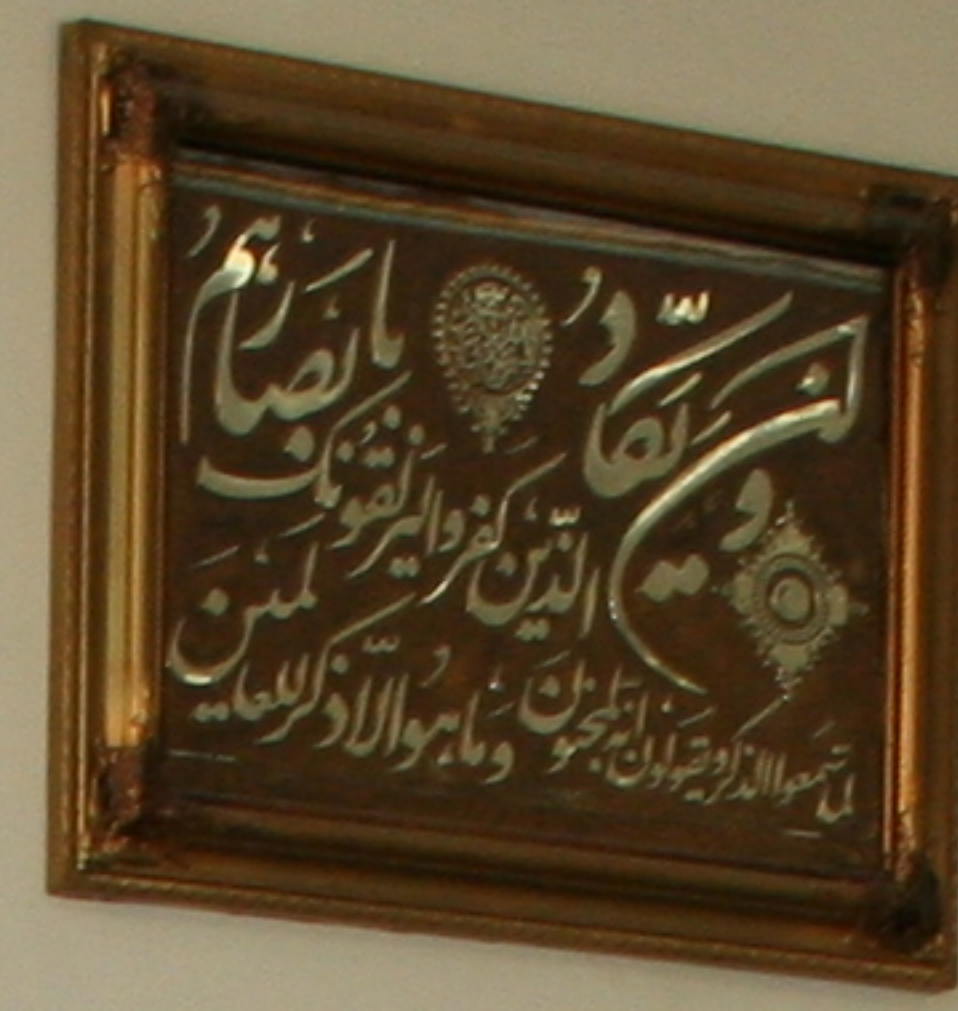 وان یکاد
الذین کفروا لیزلقونک
بابصارهم
لما سمعوا الذکر و یقولون انه لمجنون
و ما هو الا ذکر للعالمین